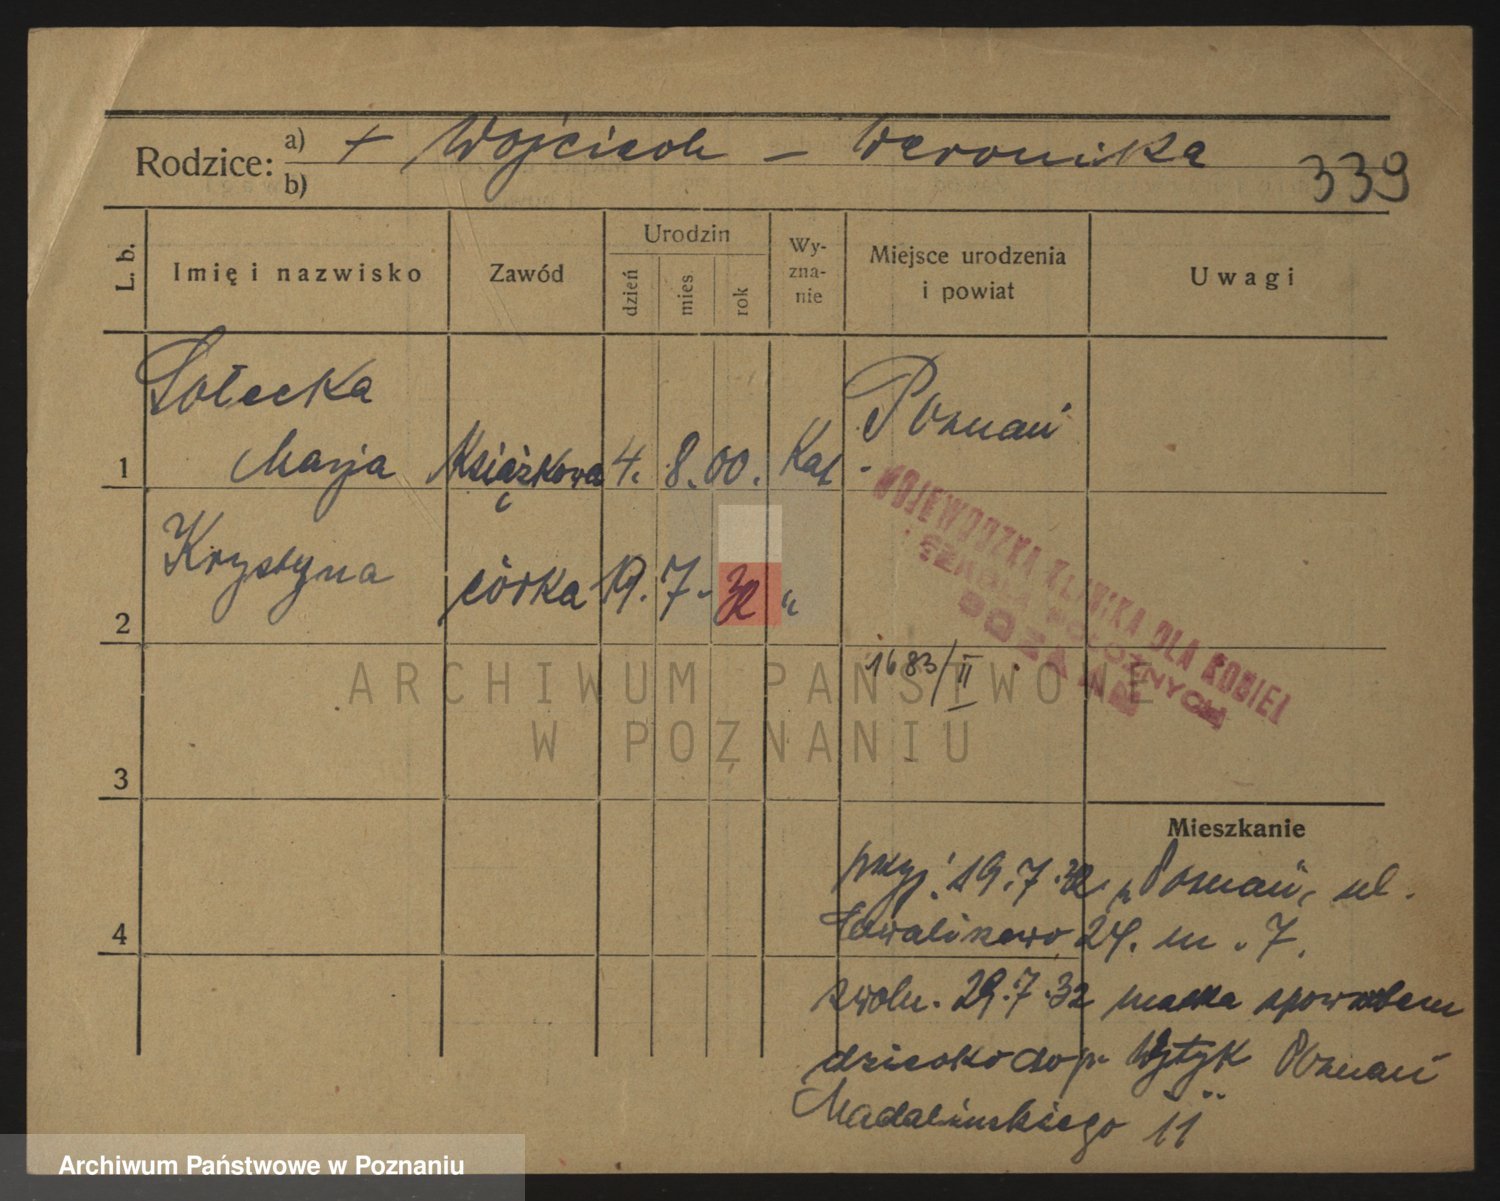 Rodzice: a) + Wojciech – Weronika
b)
339
L. b.
Imię i nazwisko
Zawód
Urodzin
dzień
mies
rok
Wy-
zna-
nie
Miejsce urodzenia
i powiat
Uwagi
Sołecka
Marja
1
Książkowa
4. 8. 00.
Kat.
Poznań
Krystyna
2
córka
19. 7. 32
"
WOJEWÓDZKA KLINIKA DLA KOBIET
POŁOŻNYCH
POZNAŃ
1683/II
ARCHIWUM PAŃSTWOWE
W POZNANIU
3
Mieszkanie
przyj. 19. 7. 32. Poznań, ul.
4
24. m. 7.
zwoln. 29. 7. 32 matka
dziecko do p. Wytyk Poznań
Madalińskiego 11
Archiwum Państwowe w Poznaniu